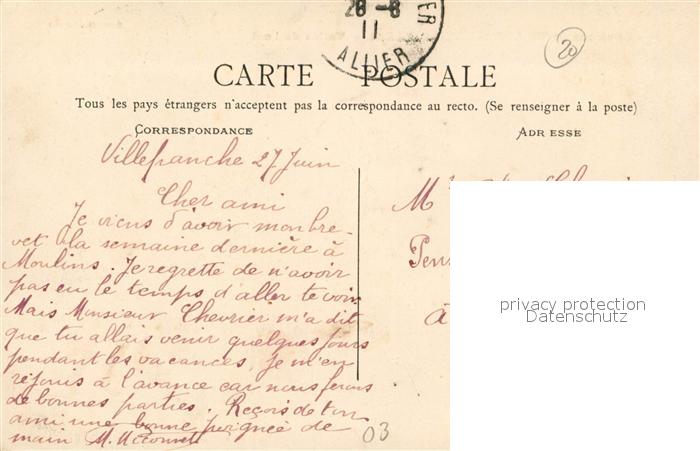 28-6
11
ALLIER
20
CARTE POSTALE
Tous les pays étrangers n'acceptent pas la correspondance au recto. (Se renseigner à la poste)
CORRESPONDANCE
ADRESSE
Villefranche 27 Juin
Cher ami
Je viens d'avoir mon bre-
vet la semaine dernière à
Moulins. Je regrette de n'avoir
pas eu le temps d'aller te voir
Mais Monsieur Chevrier m'a dit
que tu allais venir quelques jours
pendant les vacances, je m'en
réjouis à l'avance car nous ferons
de bonnes parties. Reçois de ton
ami une bonne poignée de
main M.
M
à
03
privacy protection
Datenschutz